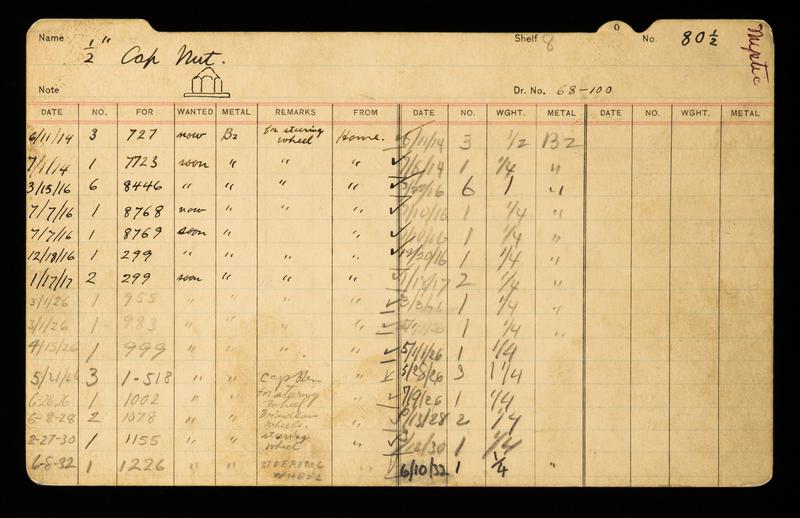 Name ½" Cap Nut. Shelf 8 O No. 80 ½ Mystic
Note Dr. No. 68-100
DATE NO. FOR WANTED METAL REMARKS FROM DATE NO. WGHT. METAL DATE NO. WGHT. METAL
6/11/14 3 727 now Bz for stearing wheel Home. ✓ 6/11/14 3 1/2 Bz
7/1/14 1 7723 soon " " " ✓ 7/5/14 1 1/4 "
3/15/16 6 8446 " " " " ✓ 6 1 "
7/7/16 1 8768 now " " " ✓ 7/10/16 1 1/4 "
7/7/16 1 8769 soon " " ✓ 7/10/16 1 1/4 "
12/18/16 1 299 " " " ✓ 12/20/16 1 1/4 "
1/17/17 2 299 soon " " " ✓ 1/18/17 2 1/4 "
3/1/26 1 955 " " " " ✓ 1 1/4 "
3/1/26 1 983 " " " " ✓ 1 1/4 "
4/15/26 1 999 " " " " ✓ 5/1/26 1 1/4
5/21/26 3 1-518 " " " ✓ 5/28/26 3 1 1/4
6-26-26 1 1002 " " for stearing wheel " 7/9/26 1 1/4
6-8-28 2 1078 " " wheels. " 6/13/28 2 1/4
2-27-30 1 1155 " " stearing wheel " 1 1/4
6-8-32 1 1226 " " STEERING WHEEL " ✓ 6/10/32 1 1/4 "